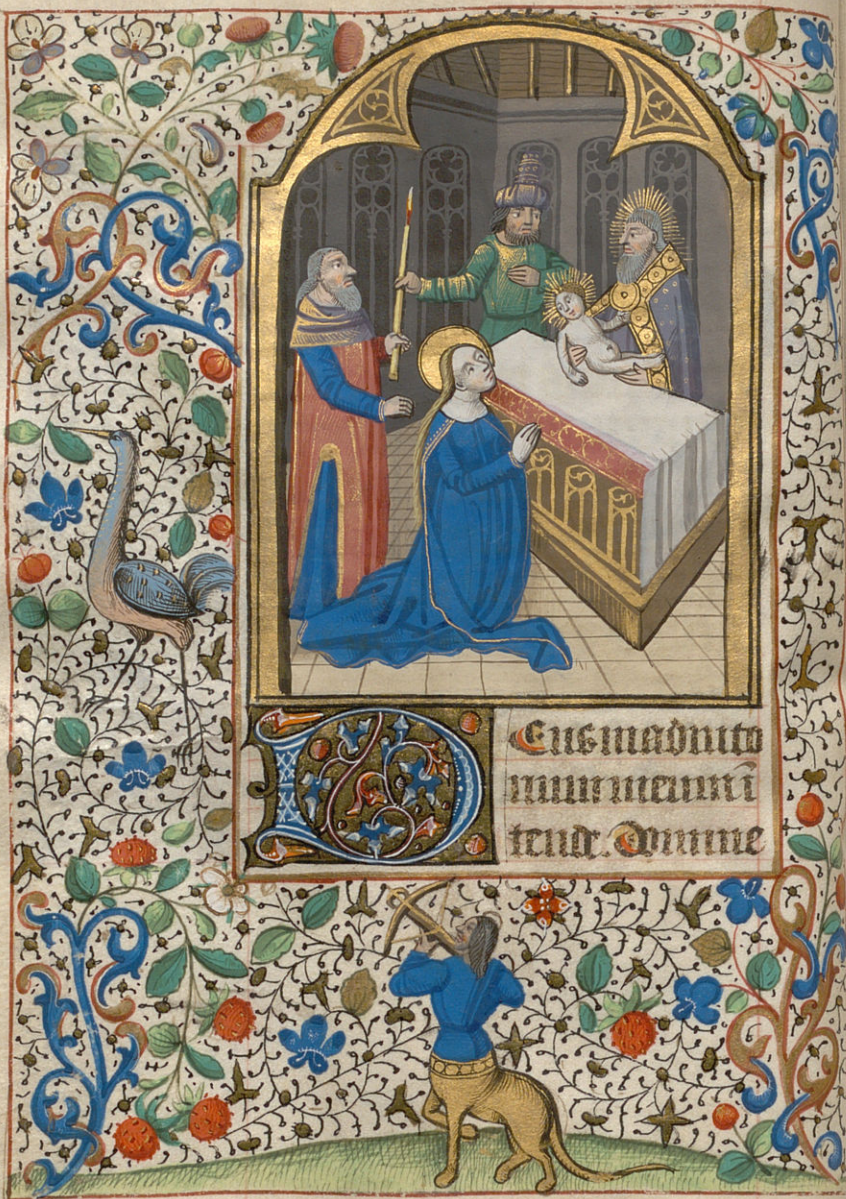 DEus in adiuto
rium meum ī
tende. Domine